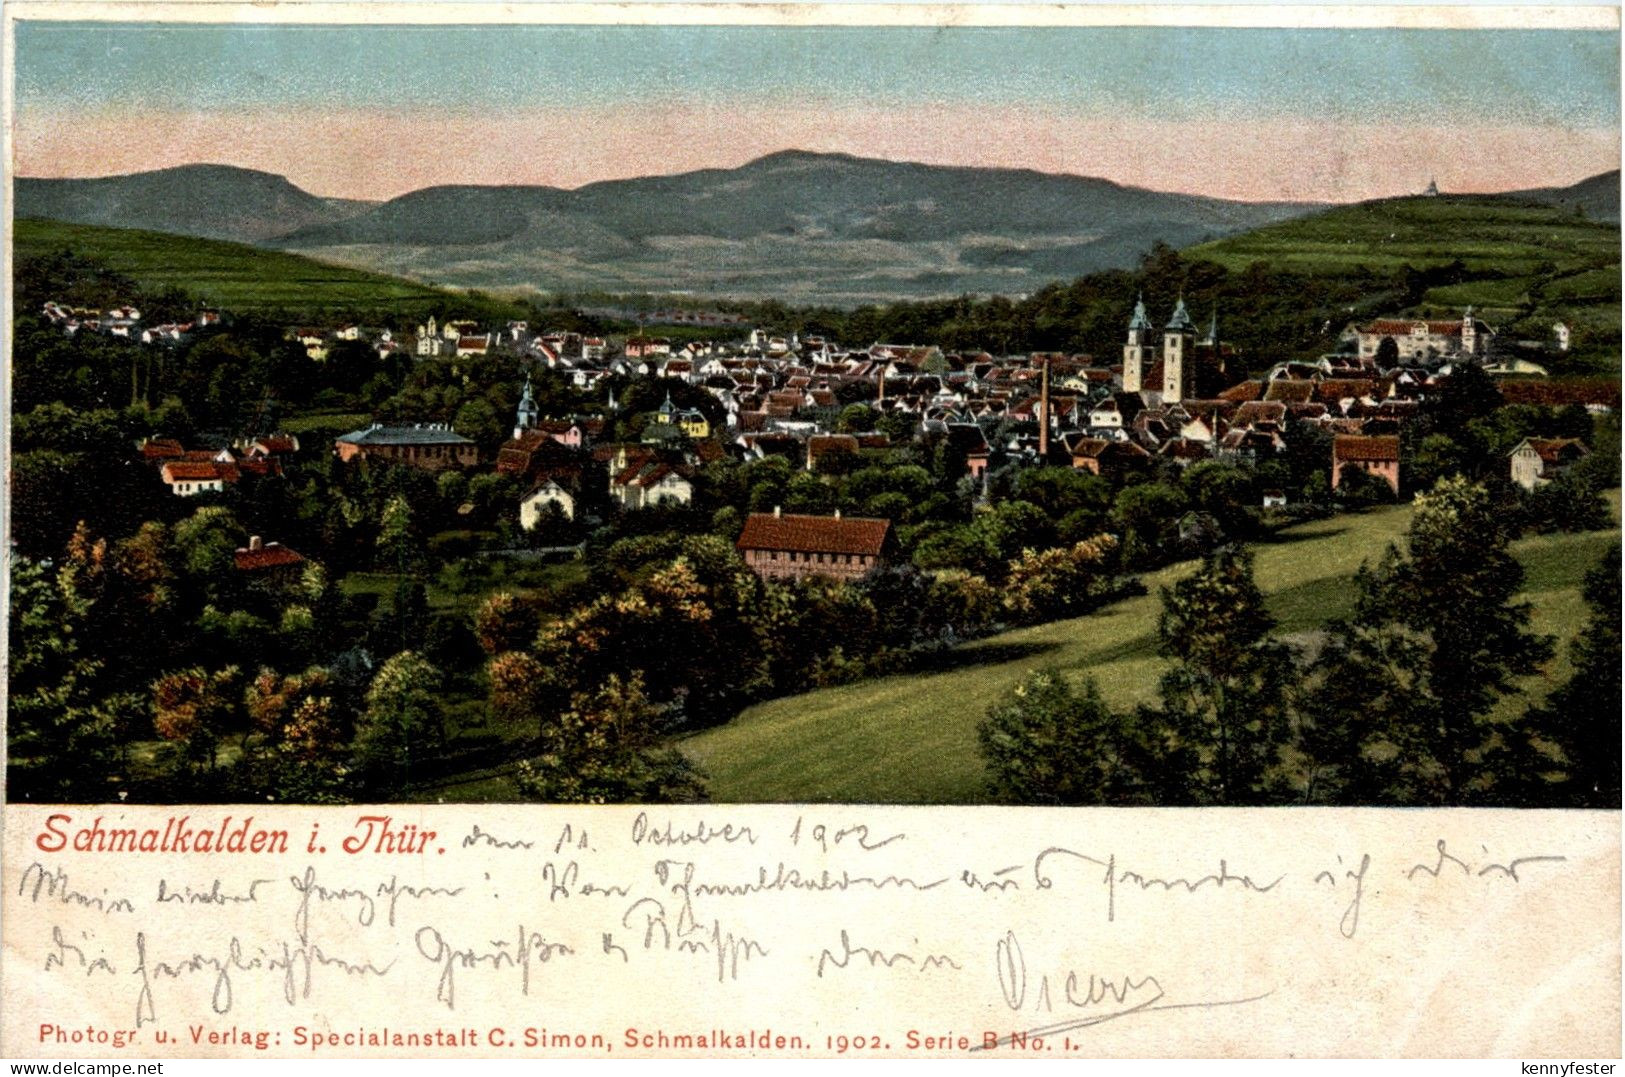 Schmalkalden i. Thür. den 11. October 1902
Mein liebes Herzchen! Von Schmalkalden aus sende ich dir
die herzlichsten Grüße u Küsse dein
Photogr. u. Verlag: Specialanstalt C. Simon, Schmalkalden. 1902. Serie B No. 1.
www.delcampe.net
kennyfester